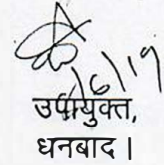 6/19
उपायुक्त,
धनबाद ।